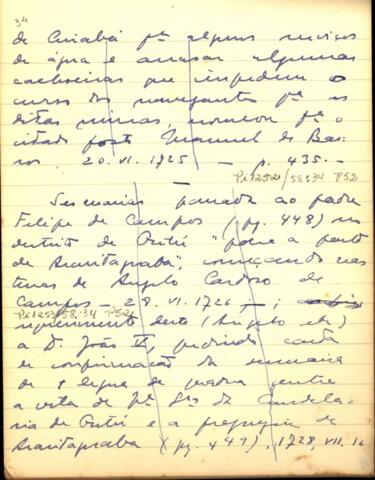 34
de Cuiabá pª alguns serviços
de água e arrasar algumas
cachoeiras que impedem o
curso dos navegantes pª as
ditas minas, nomeou pª o
citado posto Manuel de Bar-
ros. 20.VI.1725 — p. 435. —
Pi1252/58:34 P52
Sesmarias passada ao padre
Felipe de Campos (pg. 448) no
distrito de Outú "para a parte
de Araritaguaba", começando nas
terras de Angelo Cardoso de
Campos — 28.VI.1726 — ;
Pi1253/58:34 P52
requerimento deste (Angelo etc)
a D. João V, pedindo carta
de confirmação da sesmaria
de 1 legua de quadra entre
a vila de Nª Sª da Candela-
ria de Outú e a freguezia de
Araritaguaba (pg. 449), 1728, VII, 16